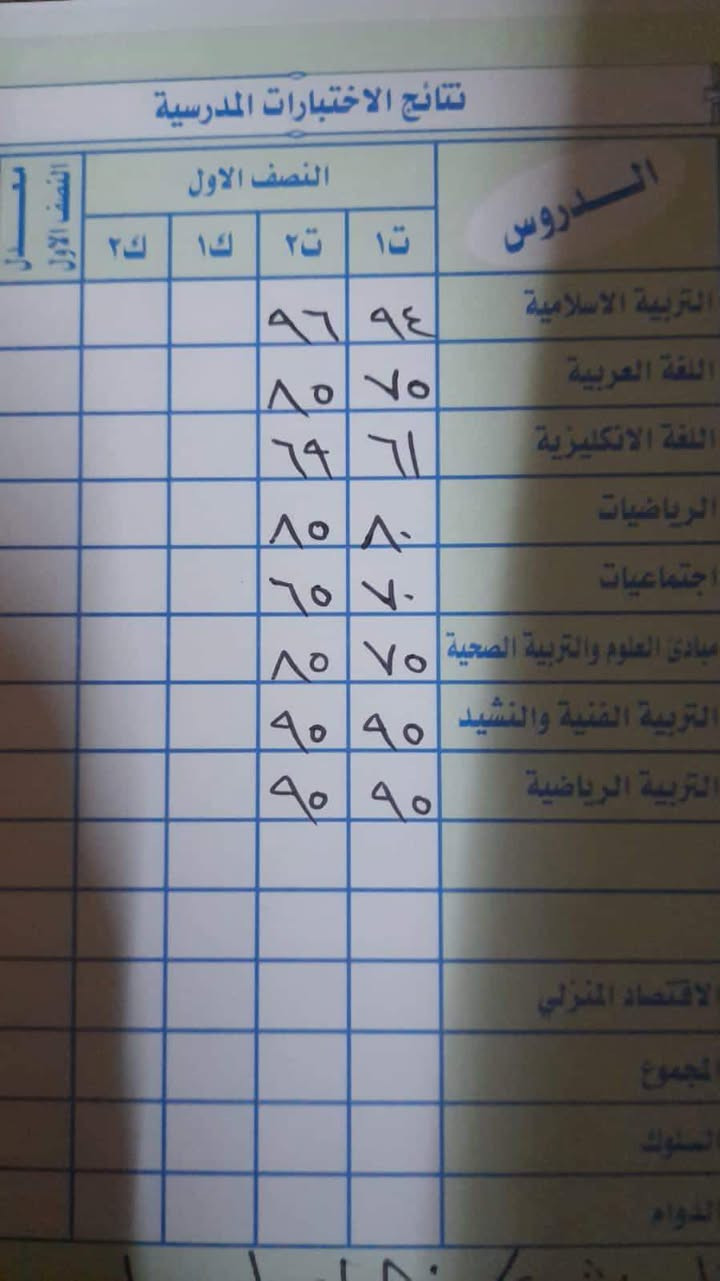 نتائج الاختبارات المدرسية
الـــدروس النصف الاول معـــدل النصف الاول
ت١ ت٢ ك١ ك٢
التربية الاسلامية ٩٤ ٩٦
اللغة العربية ٧٥ ٨٥
اللغة الانكليزية ٦١ ٦٩
الرياضيات ٨٠ ٨٥
اجتماعيات ٧٠ ٦٥
مبادئ العلوم والتربية الصحية ٧٥ ٨٥
التربية الفنية والنشيد ٩٥ ٩٥
التربية الرياضية ٩٥ ٩٥
الاقتصاد المنزلي
المجموع
السلوك
الدوام